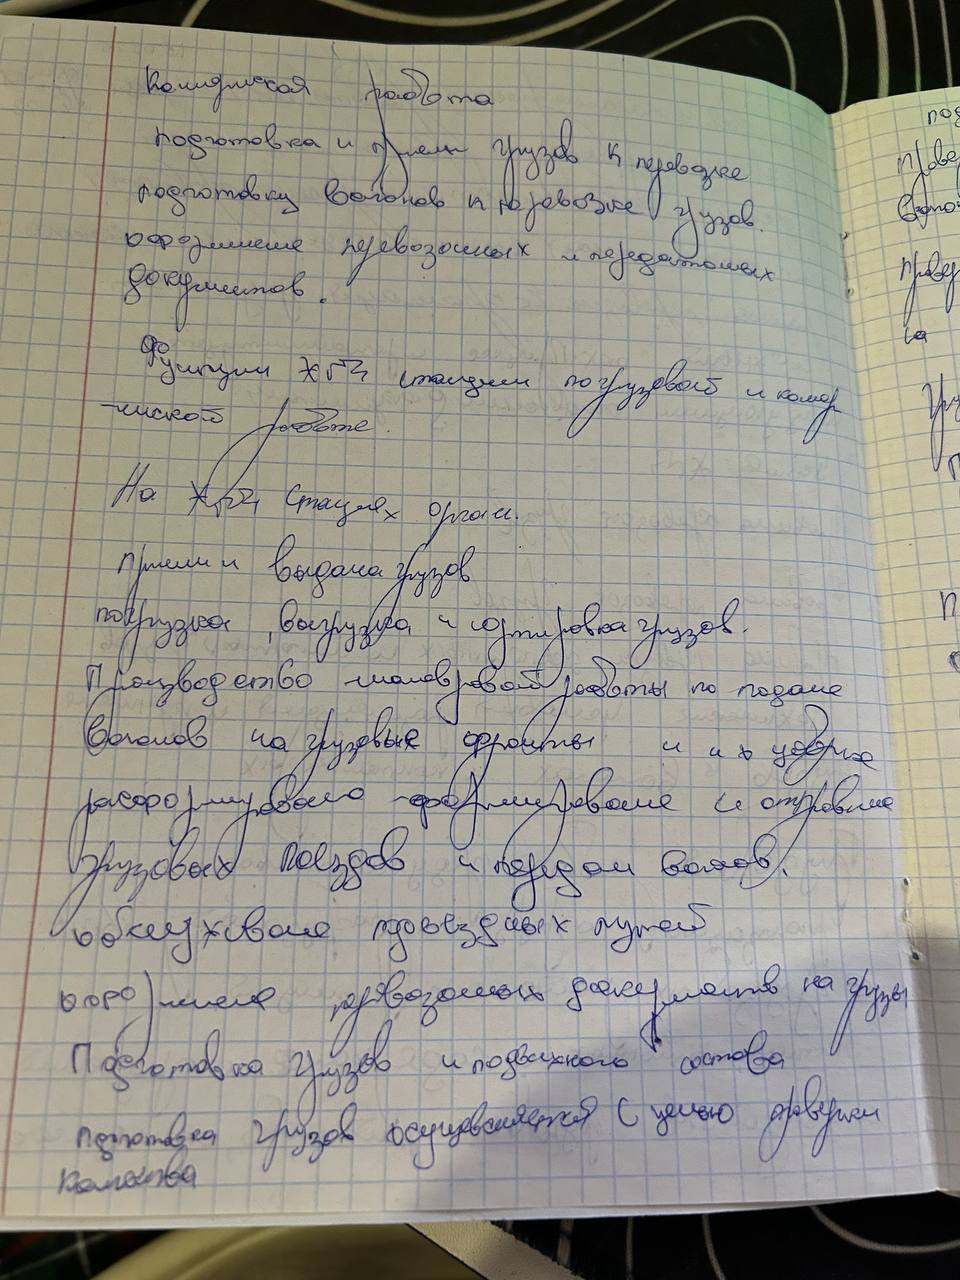 Комерческая работа
подготовка и прием грузов к перевозке
подготовку вагонов к перевозке грузов.
оформление перевозочных и передаточных
документов.
Функции ЖДТ станции по грузовой и комер
-ческой работе.
На ЖДТ станциях орган.
прием и выдача грузов
погрузка, выгрузка и сортировка грузов.
Производство маневровой работы по подаче
вагонов на грузовые фронты и их уборке
расформирование формирование и отправление
грузовых поездов и передач вагонов.
обслуживание подъездных путей
оформление перевозочных документов на грузы
Подготовка грузов и подвижного состава
подготовка грузов осуществляется с целью проверки
качества
под
провер
вагон
провер
са